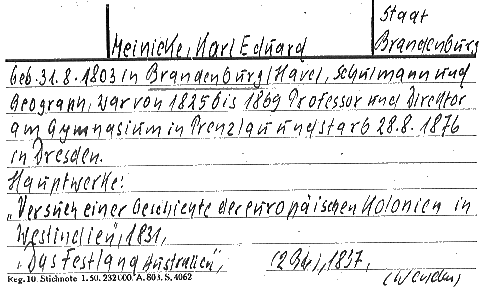 Staat
Meinicke, Karl Eduard
Brandenburg
geb. 31.8.1803 in Brandenburg/Havel, Schulmann und
Geograph, war von 1825 bis 1869 Professor und Direktor
am Gymnasium in Prenzlau und starb 28.8.1876
in Dresden.
Hauptwerke:
„Versuch einer Geschichte der europäischen Kolonien in
Westindien", 1831,
„Das Festland Australien", (2 Bde), 1837,
Reg. 10. Stichnote 1. 50. 232000. A. 80 3. S. 4062
(Wenden)